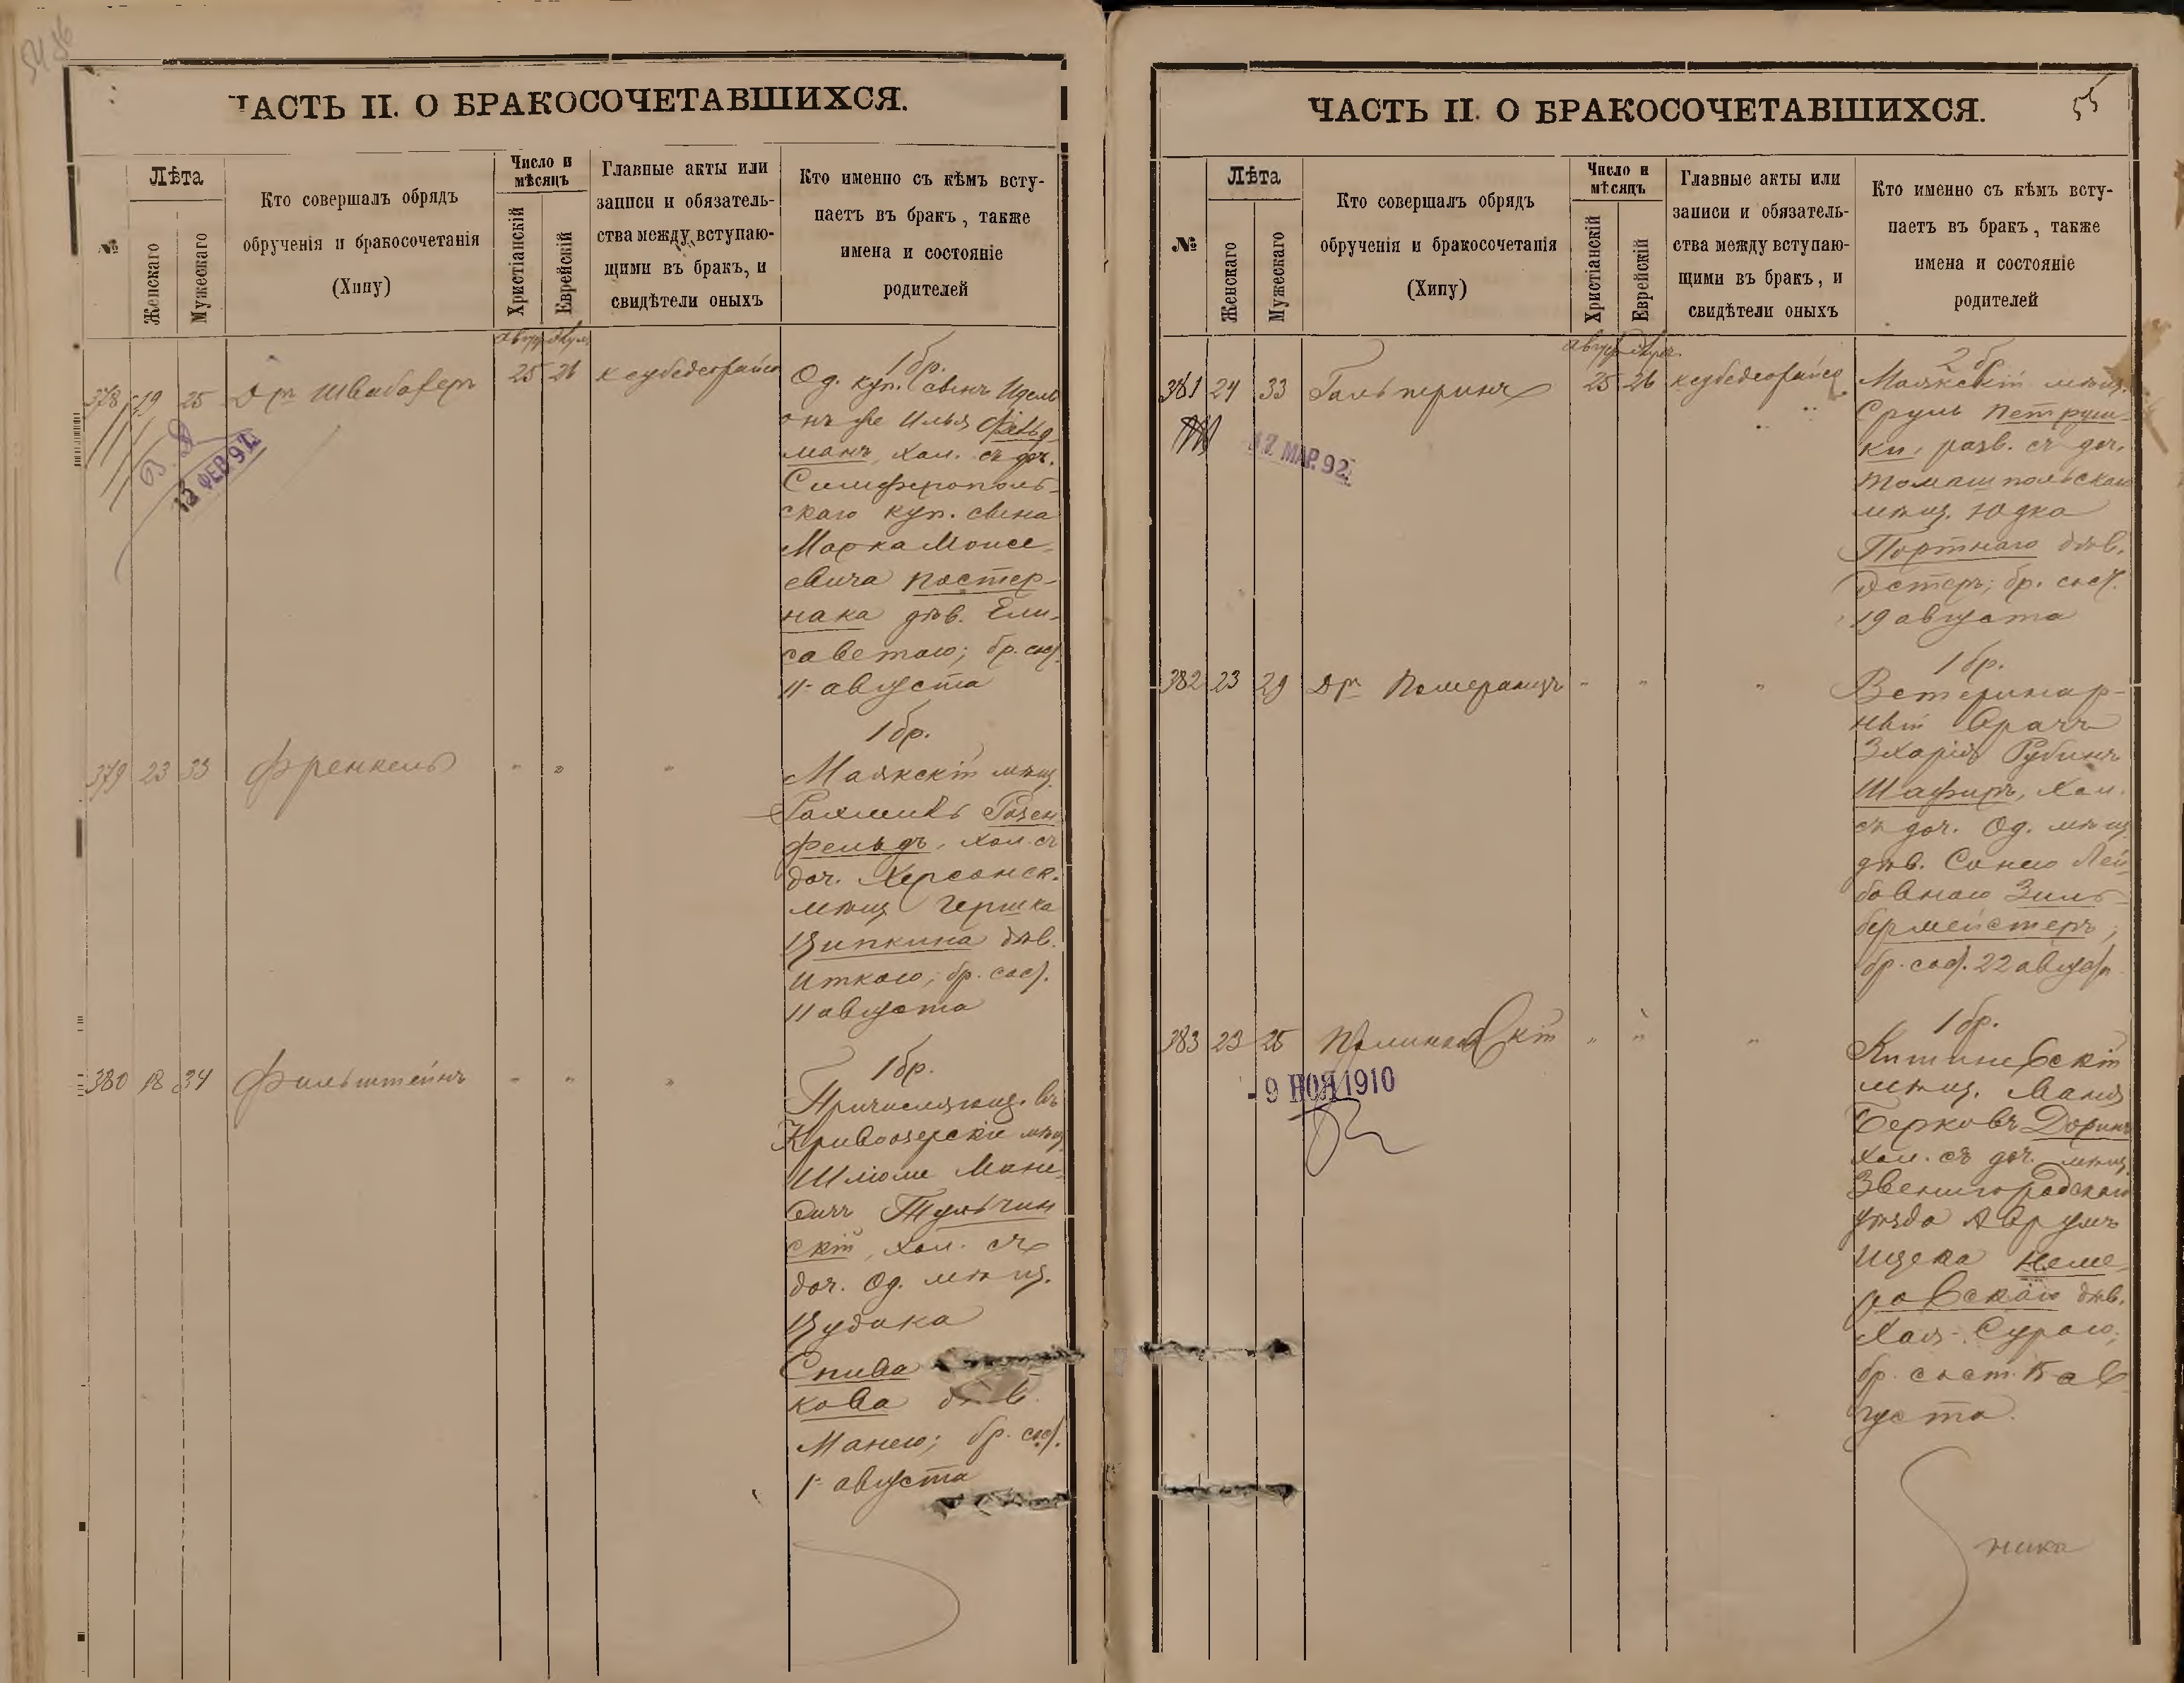 ЧАСТЬ II. О БРАКОСОЧЕТАВШИХСЯ.
№
Лѣта
Женскаго
Мужескаго
Кто совершалъ обрядъ
обрученія и бракосочетанія
(Хипу)
Число и
мѣсяцъ
Христіанскій
Еврейскій
Главные акты или
записи и обязатель-
ства между вступаю-
щими въ бракъ, и
свидѣтели оныхъ
Кто именно съ кѣмъ всту-
паетъ въ бракъ, также
имена и состояніе
родителей
378 19 25 Дръ Швабахеръ
25 26
13 ФЕВ 92
1 бр.
Од. куп. сынъ Идель
онъ же Илья Фельд-
манъ, хол. съ доч.
Симферополь-
скаго куп. сына
Марка Моисе-
евича Пастер-
нака дѣв. Ели-
саветою; бр. сос.
11 августа
379 23 33 Френкель " " "
1 бр.
Маякскій мѣщ.
Рахмиль Розен
фельдъ, хол. съ
доч. Херсонск.
мѣщ Гершка
Ципкина дѣв.
Иткою; бр. сос.
11 августа
380 18 34 Фильштейнъ " " "
1 бр.
Причисляющ. въ
Кривоозерскіе мѣщ
Шлюме
Тульчин
скій, хол. съ
доч. Од. мѣщ.
Цудика
Спива
кова дѣв.
Манею; бр. сос.
1 августа
ЧАСТЬ II. О БРАКОСОЧЕТАВШИХСЯ.
55
№
Лѣта
Женскаго
Мужескаго
Кто совершалъ обрядъ
обрученія и бракосочетанія
(Хипу)
Число и
мѣсяцъ
Христіанскій
Еврейскій
Главные акты или
записи и обязатель-
ства между вступаю-
щими въ бракъ, и
свидѣтели оныхъ
Кто именно съ кѣмъ всту-
паетъ въ бракъ, также
имена и состояніе
родителей
381 24 33 Гальперинъ
25 26
17 МАР. 92
2 бр.
Маякскій мѣщ.
Сруль Петруш-
ки, разв. съ доч.
Томашпольскаго
мѣщ. Юдка
Портнаго дѣв.
Эстеръ; бр. сос.
19 августа
382 23 29 Дръ Померанцъ " " "
1 бр.
Ветеринар-
ный врачъ
Захарія Рубинъ
Шафиръ, хол.
съ доч. Од. мѣщ
дѣв. Сонею Лей-
бовною Зиль-
бермейстеръ;
бр. сос. 22 август
383 23 25 " " "
- 9 НОЯ 1910
1 бр.
Кишиневскій
мѣщ. Маня
Берковъ Доринъ
хол. съ доч. мѣщ.
Звенигородскаго
уѣзда Аврумъ
Ицека Неме-
ровскаго дѣв.
Хая-Сурою;
бр. сост. 15 ав
густа.